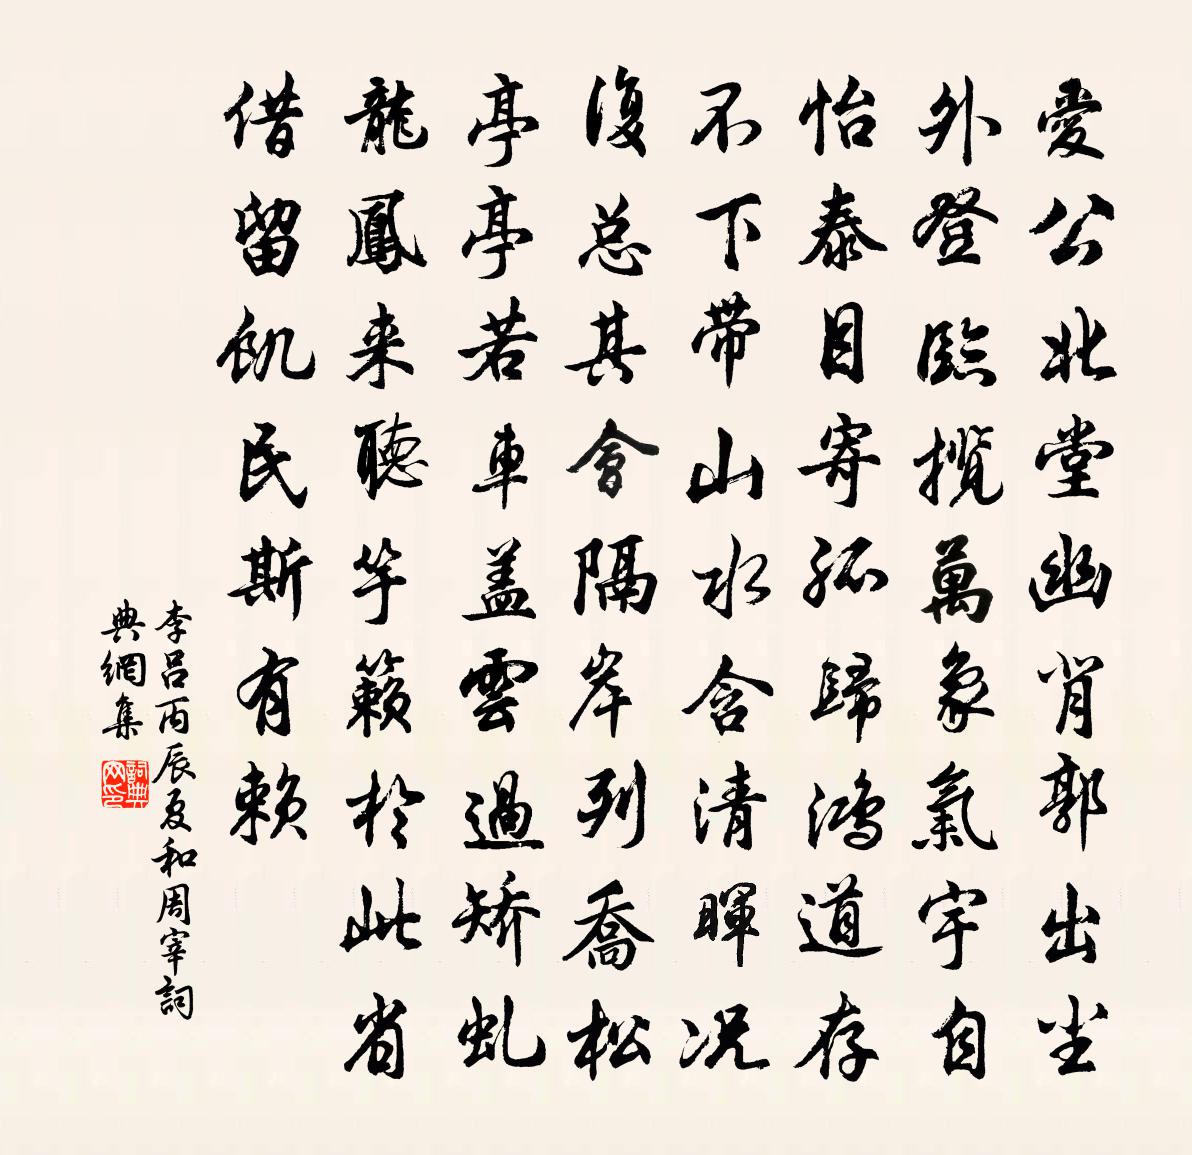 愛公北堂幽肖郭出尘
外登臨揽萬象氣宇自
怡泰目寄孤歸鴻道存
不下带山水含清暉况
復总其會隔岸列喬松
亭亭若車盖雲過矫虬
龍鳳来聽竽籁於此省
借留飢民斯有赖
李吕丙辰夏和周宰詞
典網集
詞典网印